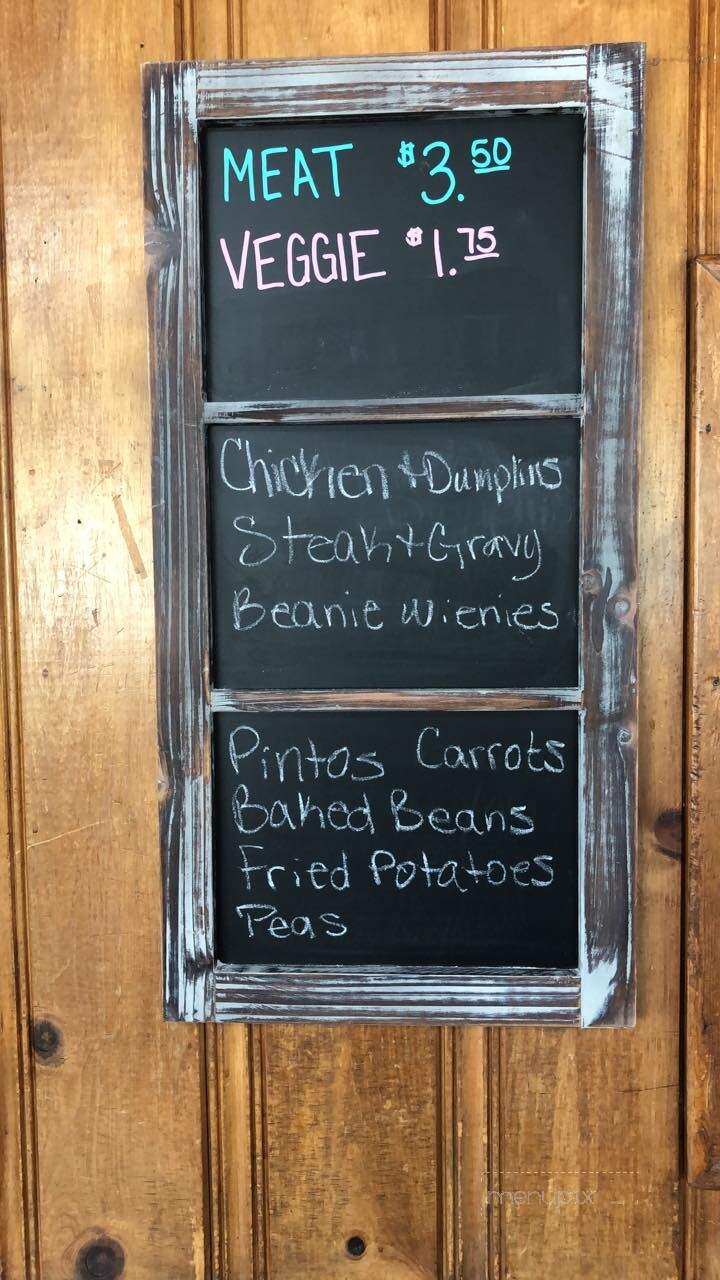 MEAT $3.50
VEGGIE $1.75
Chicken + Dumplins
Steak + Gravy
Beanie Wienies
Pintos Carrots
Baked Beans
Fried Potatoes
Peas
menupix